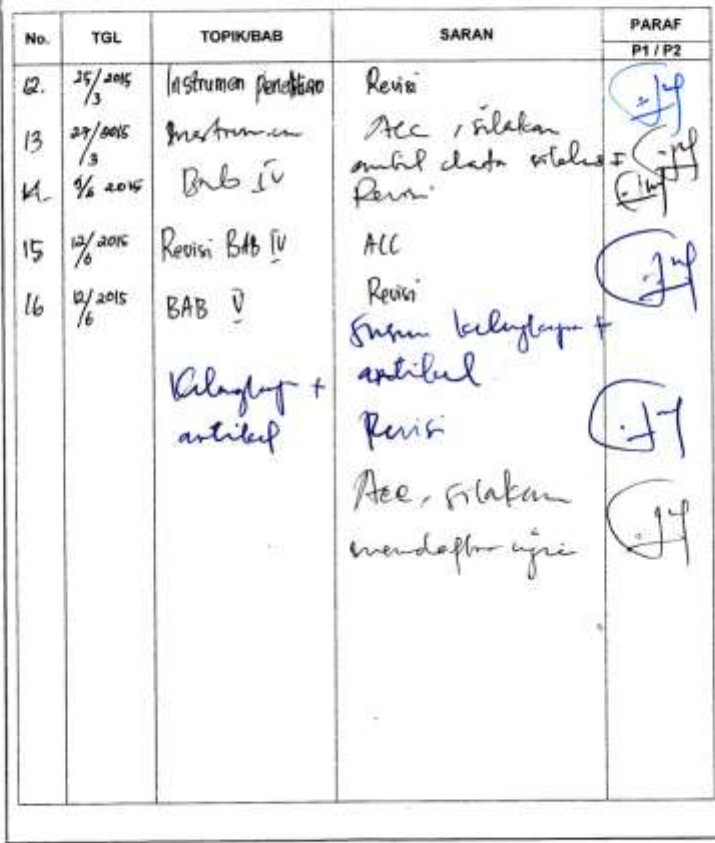 No. TGL TOPIK/BAB SARAN PARAF
P1 / P2
12. 25/3 2015 Instrumen Penelitian Revisi
13 27/3 2015 Instrumen Acc, silakan
ambil data
14. 9/6 2015 Bab IV Revisi
15 12/6 2015 Revisi BAB IV ACC
16 12/6 2015 BAB V Revisi
Susun kelengkapan +
artikel
Kelengkapan +
artikel Revisi
Acc, silakan
mendaftar ujian